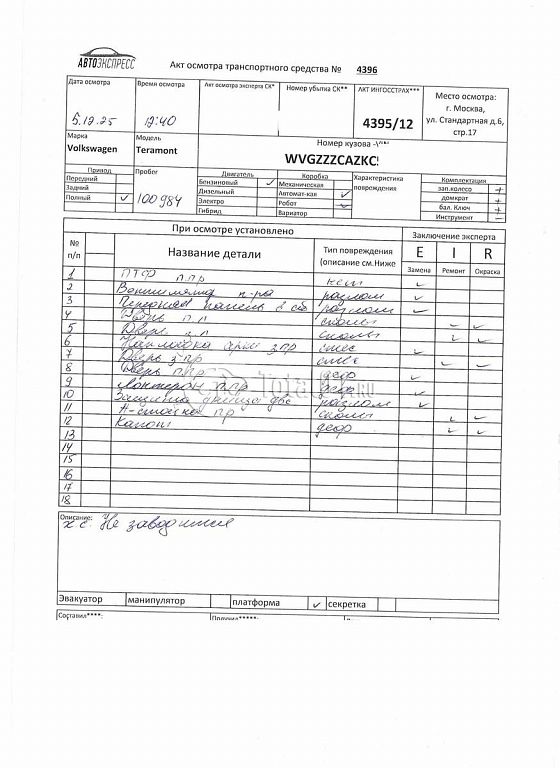 АВТОЭКСПРЕСС
Акт осмотра транспортного средства № 4396
Дата осмотра
5.12.25
Время осмотра
12:40
Акт осмотра эксперта СК*
Номер убытка СК**
АКТ ИНГОССТРАХ***
4395/12
Место осмотра:
г. Москва,
ул. Стандартная д.6,
стр.17
Марка
Volkswagen
Модель
Teramont
Номер кузова
WVGZZZCAZKC
Привод
Передний
Задний
Полный ✓
Пробег
100984
Двигатель
Бензиновый ✓
Дизельный
Электро
Гибрид
Коробка
Механическая
Автомат-кая ✓
Робот
Вариатор
Характеристика
повреждения
Комплектация
зап.колесо +
домкрат +
бал. Ключ +
Инструмент –
При осмотре установлено
Заключение эксперта
№
п/п
Название детали
Тип повреждения
(описание см.Ниже
E I R
Замена Ремонт Окраска
1 ПТФ п.пр
2 разлом ✓
3 Передняя панель разлом ✓
4 п.п сколы
5 Дверь сколы
6 Накладка арки з пр
7 Дверь з пр
8 Дверь деф
9 п.пр деф
10 Защита днища разлом
11 А-стойка пр сколы
12 Капот деф
13
14
15
16
17
18
Описание:
Не заводится
Эвакуатор
манипулятор
платформа ✓
секретка
Составил****:
Получил*****: